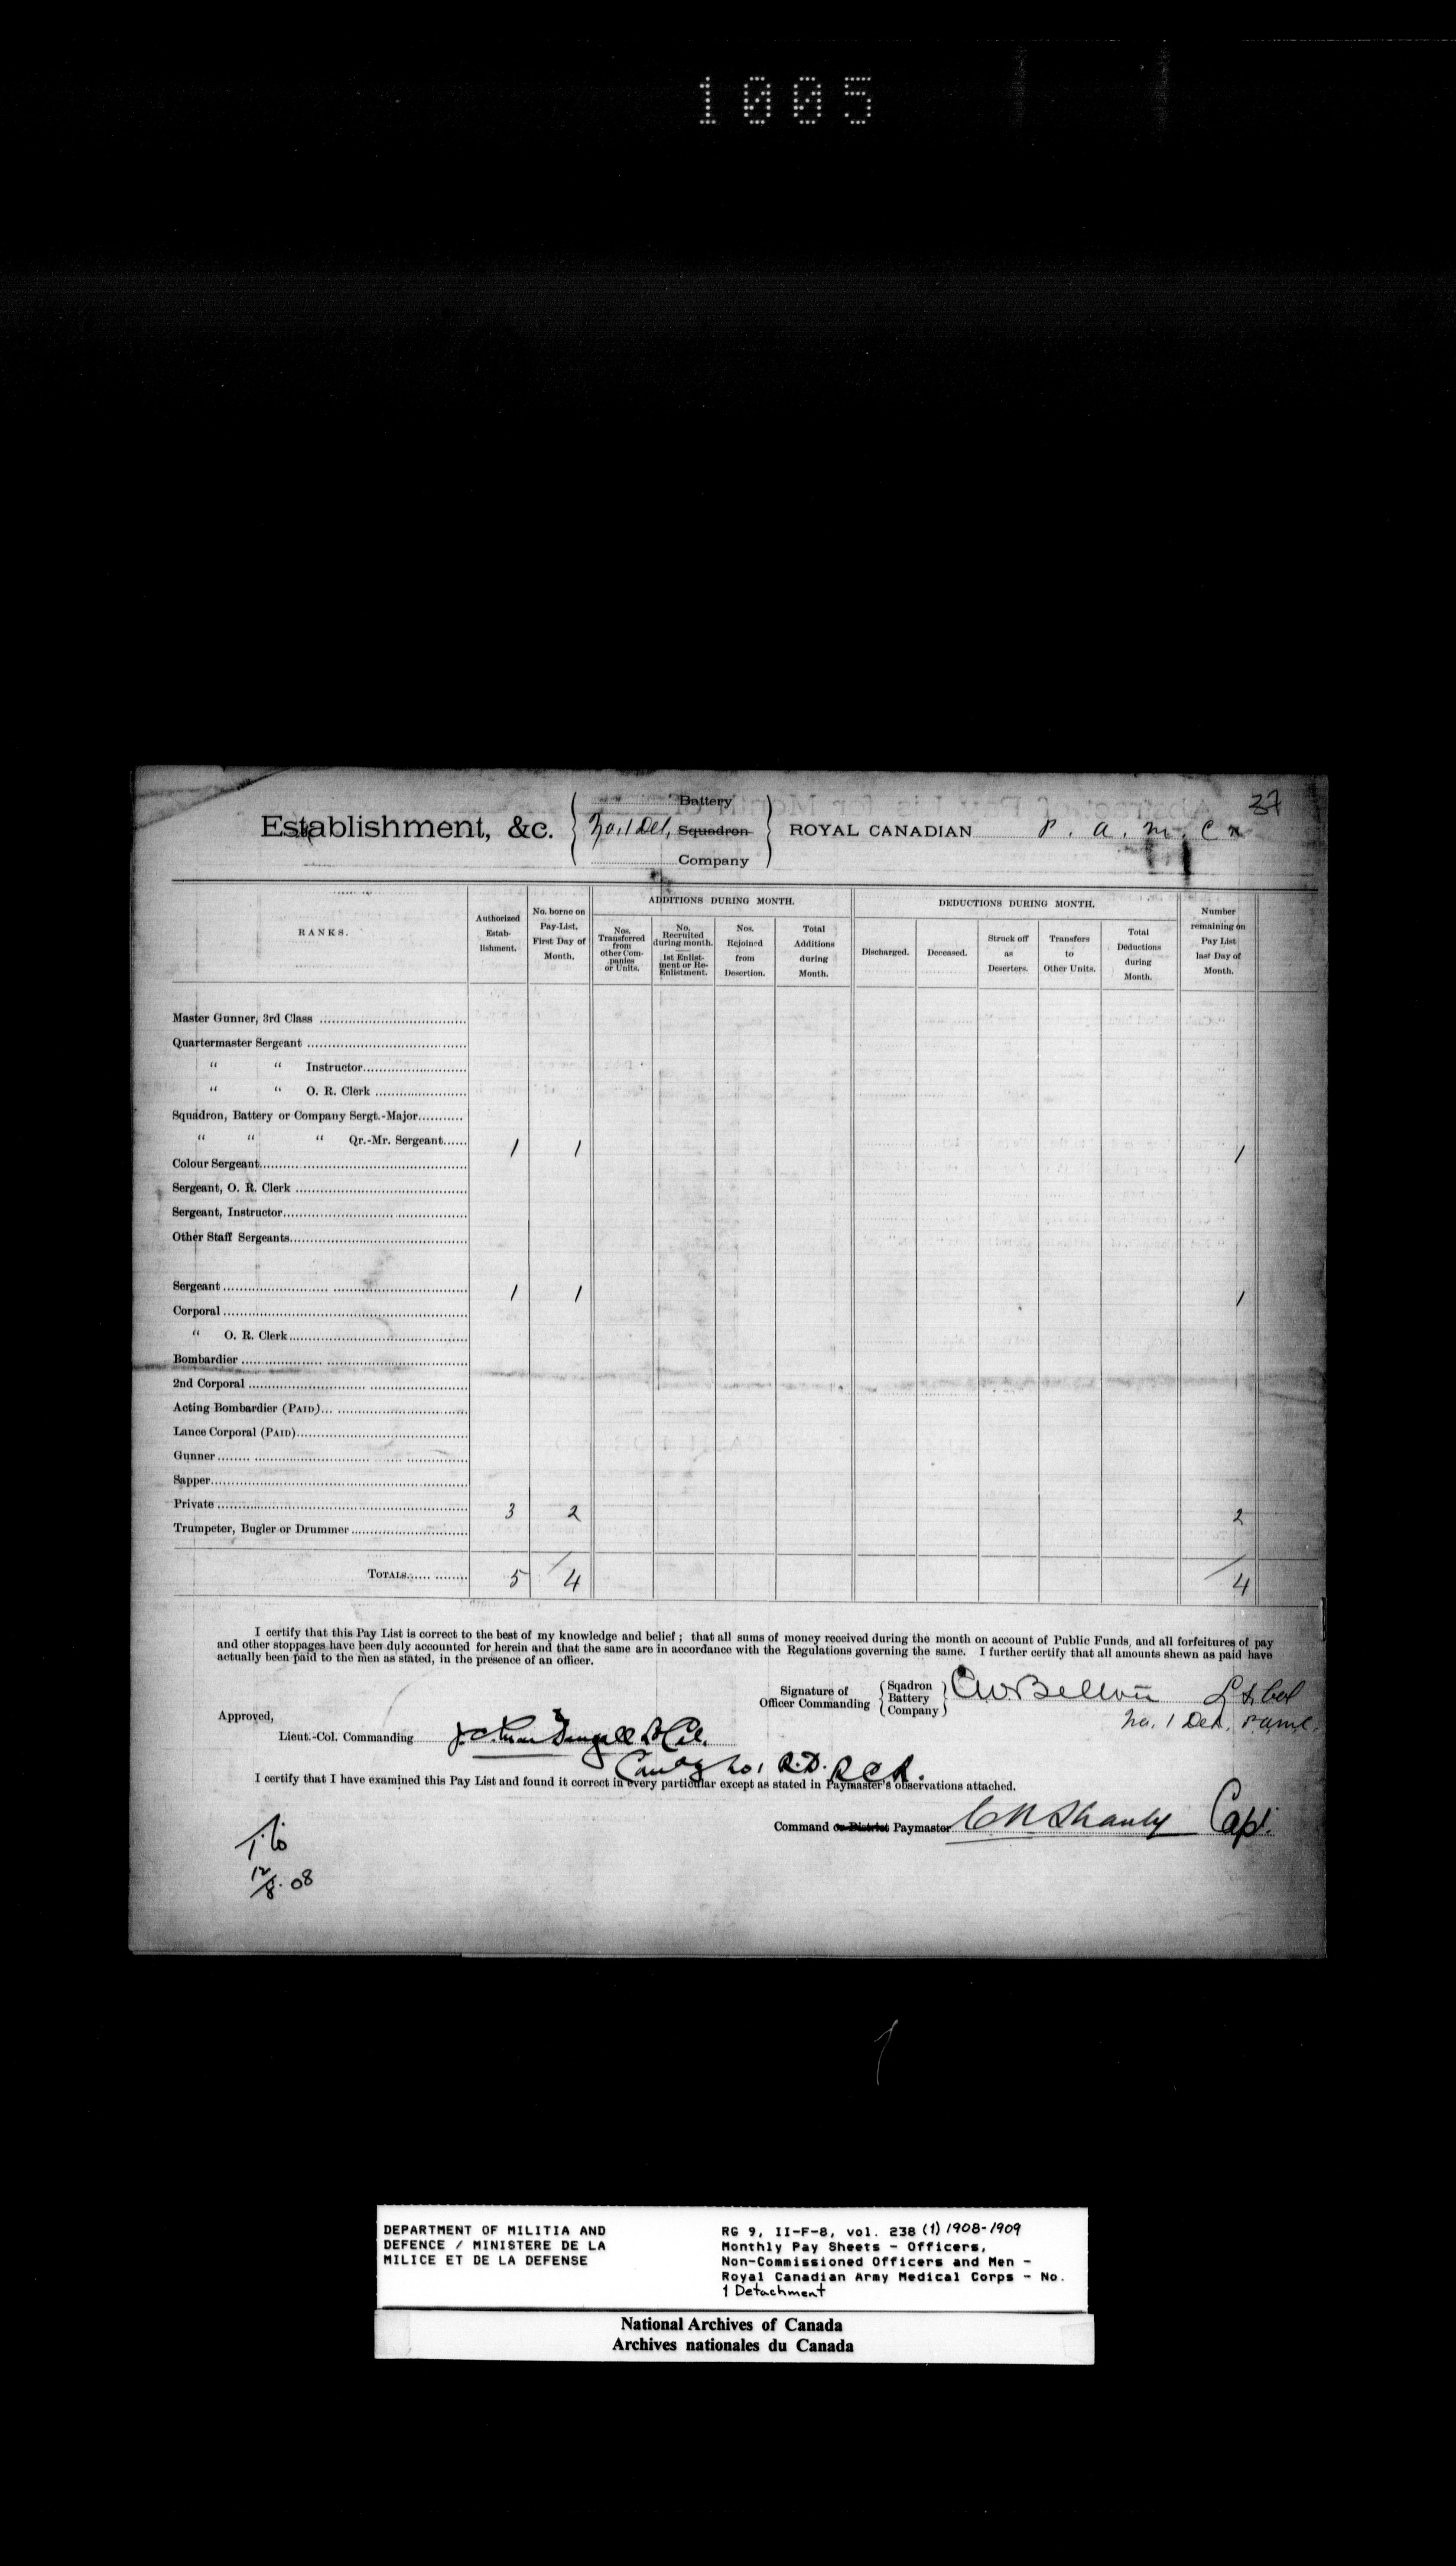 1005
37
Establishment, &c. { No. 1 Det, Battery Squadron Company } ROYAL CANADIAN P. A. M. C.
RANKS.
Authorized Estab-lishment.
No. borne on Pay-List, First Day of Month.
ADDITIONS DURING MONTH.
Nos. Transferred from other Com-panies or Units.
No. Recruited during month. 1st Enlist-ment or Re-Enlistment.
Nos. Rejoined from Desertion.
Total Additions during Month.
DEDUCTIONS DURING MONTH.
Discharged.
Deceased.
Struck off as Deserters.
Transfers to Other Units.
Total Deductions during Month.
Number remaining on Pay List last Day of Month.
Master Gunner, 3rd Class
Quartermaster Sergeant
" " Instructor
" " O. R. Clerk
Squadron, Battery or Company Sergt.-Major
" " " Qr.-Mr. Sergeant 1 1 1
Colour Sergeant
Sergeant, O. R. Clerk
Sergeant, Instructor
Other Staff Sergeants
Sergeant 1 1 1
Corporal
" O. R. Clerk
Bombardier
2nd Corporal
Acting Bombardier (PAID)
Lance Corporal (PAID)
Gunner
Sapper
Private 3 2 2
Trumpeter, Bugler or Drummer
TOTALS 5 4 4
I certify that this Pay List is correct to the best of my knowledge and belief ; that all sums of money received during the month on account of Public Funds, and all forfeitures of pay
and other stoppages have been duly accounted for herein and that the same are in accordance with the Regulations governing the same. I further certify that all amounts shewn as paid have
actually been paid to the men as stated, in the presence of an officer.
Signature of Officer Commanding { Sqadron Battery Company } Lt Col
No. 1 Det. PAMC.
Approved,
Lieut.-Col. Commanding Lt Col.
Comdg No 1 R.D. RCR.
I certify that I have examined this Pay List and found it correct in every particular except as stated in Paymaster's observations attached.
Command or District Paymaster C N Shanly Capt.
12/8.08
DEPARTMENT OF MILITIA AND
DEFENCE / MINISTERE DE LA
MILICE ET DE LA DEFENSE
RG 9, II-F-8, vol. 238 (1) 1908-1909
Monthly Pay Sheets - Officers,
Non-Commissioned Officers and Men -
Royal Canadian Army Medical Corps - No.
1 Detachment
National Archives of Canada
Archives nationales du Canada